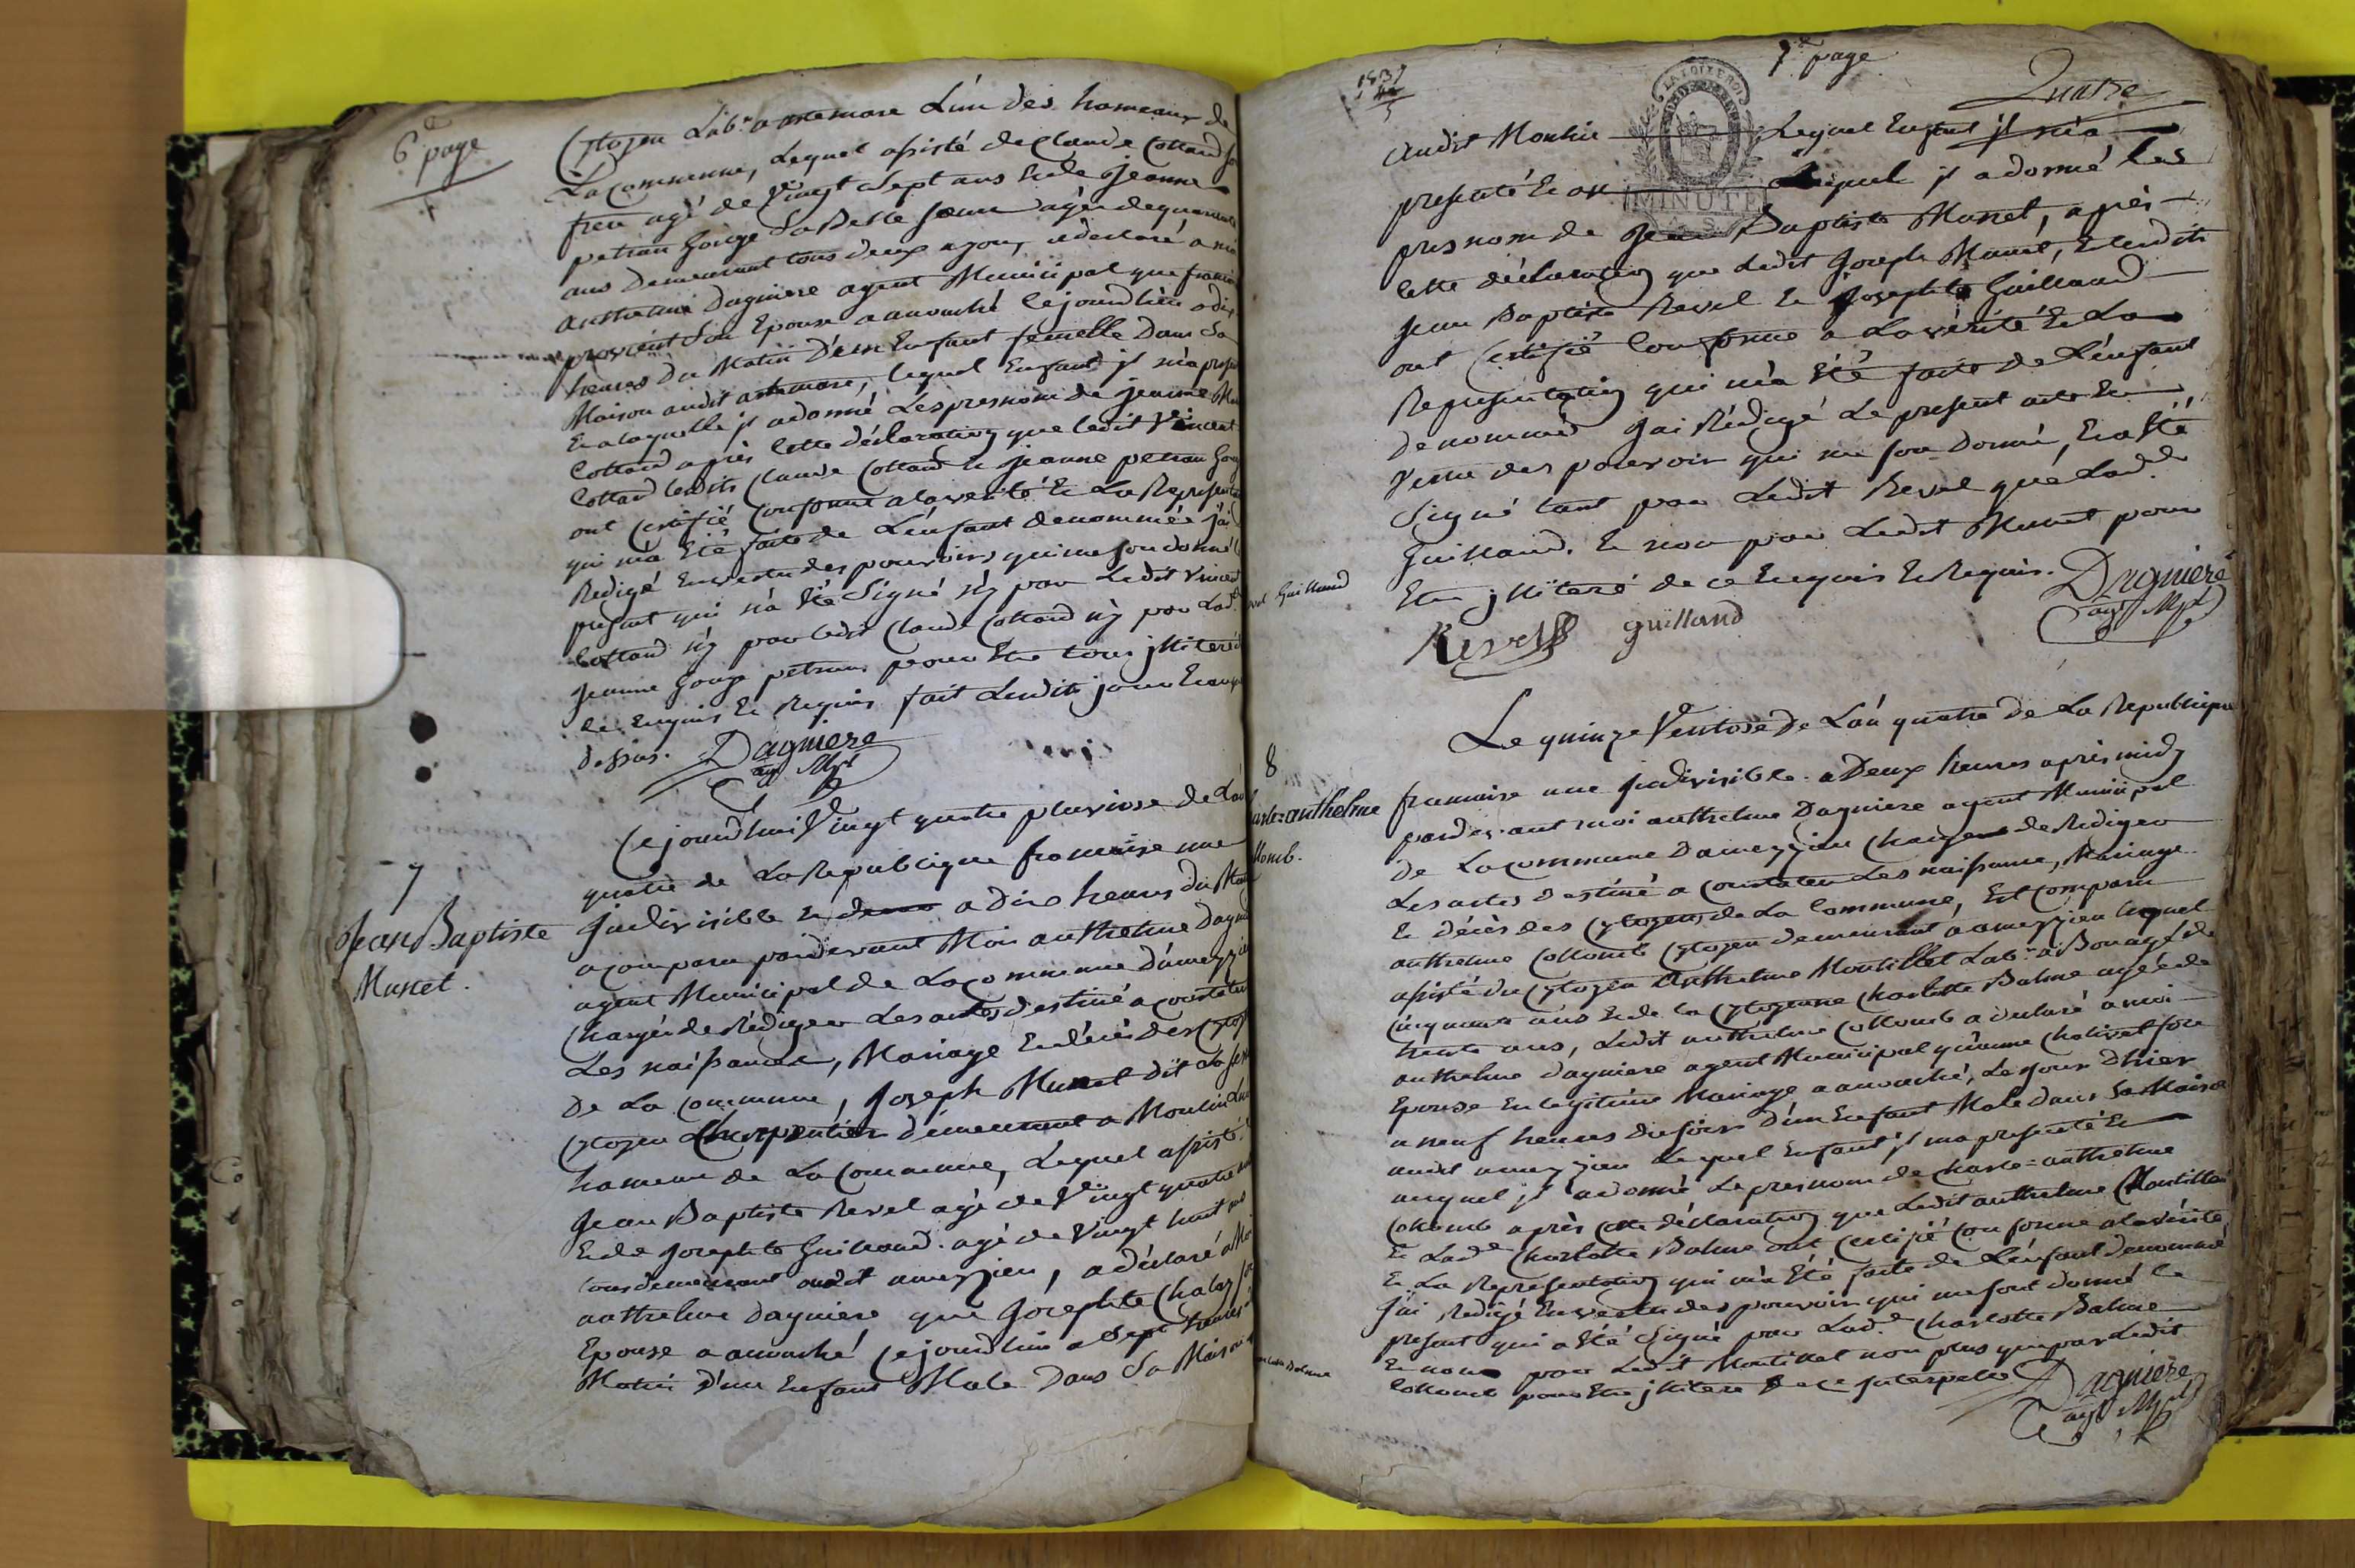 6e page
Cytoyen Labr a artemare L'un des hameaux de
La Commune, Lequel assisté de Claude Cottand son
frere agé de Vingt Sept ans Et de Jeanne
petran Gouge Sa Belle soeur agée de quarante
ans Demeurant tous deux a you, a declaré a moi
anthelme Dagniere agent Municipal que
Son Epouse a accouché Cejourd'hui a dix
heures Du Matin D'un Enfant femelle Dans Sa
Maison audit artemare, lequel Enfant jl m'a
Et a laquelle jl a donné Les presnoms de jeanne
Cottand après Cette declaration que ledit Vincent
Cottand lesdits Claude Cottand Et Jeanne petran
ont Certifié Conforme a la verité Et La
qui m'a Eté faite de L'enfant denommée j'ai
Redigé En vertu des pouvoirs qui me son donné le
present qui n'a Eté Signé n'y par Ledit Vincent
Cottand n'y par ledit Claude Cottand n'y par Lade
Jeanne Gouge petran pour Etre tous jlliteré
de Enquis Et Requis fait Lesdits jour Et an que
dessus. Dagniere
agt Mpl
7
Jean Baptiste
Muret.
Cejourdhui Vingt quatre pluviose de L'an
quatre de La Republique francoise une
Jndivisible Et a Dix heures du
a comparu pardevant Moi anthelme
agent Municipal de La Commune D'ameyzieu
Chargé de Rédiger Les actes destiné a constater
Les naissance, Mariage Et décès Des
De La Commune, Joseph Muret dit
Cytoyen Charpentier demeurant a Moulin
hameau de La Commune, Lequel assisté
Jean Baptiste Revel agé de Vingt quatre ans
Et de Josephte Guilland. agé de Vingt huit ans
tous demeurant audit ameyzieu, a déclaré a
anthelme Dagniere que Josephte Chalay son
Epouse a accouché Cejourdhui a Sept heures
Matin D'un Enfant Male Dans Sa Maison
7e page
Quatre
LA LOI LE ROI
MINUTE
audit Moulin Lequel Enfant jl m'a
presenté Et au Lequel jl a donné les
presnom de Jean Baptiste Muret, après
Cette déclaration que Ledit Joseph Muret, Et lesdits
Jean Baptiste Revel Et Josephte Guilland
ont Certifié Conforme a La vérité Et La
Representation qui m'a Eté faite de L'enfant
denommé j'ai Rédigé Le present acte En
Vertu des pouvoir qui me son Donné, Et a Eté
Signé tant par Ledit Revel que Lade
Guilland. Et non par Ledit Muret pour
Etre jlliteré de ce Enquis Et Requis. Dagniere
agt Mpl
Guilland
Revel guilland
8
anthelme
Le quinze Ventose de L'an quatre de La Republique
francoise une Jndivisible a Deux heures après midy
pardevant moi anthelme Dagniere agent Municipal
de La Commune Dameyzieu Chargé de Rediger
Les actes Destiné a Constater Les naissance, Mariage
Et décès des Cytoyens de La Commune, Est Comparu
anthelme Collomb Cytoyen demeurant a ameyzieu lequel
assisté du Cytoyen Anthelme Montillet Labr agé de
Cinquante ans Et de la Cytoyenne Charlotte Balme agée de
trente ans, Ledit anthelme Collomb a declaré a moi
anthelme Dagniere agent Municipal qu'anne Chalivet son
Epouse En legitime Mariage a accouché, Le jour D'hier
a neuf heures du soir D'un Enfant Male dans Sa Maison
audit ameyzieu Lequel Enfant jl m'a presenté Et
auquel jl a donné Le presnom de Charle=anthelme
Collomb après Cette déclaration que Ledit anthelme Montillet
Et Lade Charlotte Balme ont Certifié Conforme a la vérité
Et La Representation qui m'a Eté faite de L'enfant denommé
J'ai Redigé En vertu des pouvoir qui me sont donné le
present qui a Eté Signé par Lade Charlotte Balme
Et non par Ledit Montillet non plus que par Ledit
Collomb pour Etre jlliteré de ce Interpellé Dagniere
agt Mpl